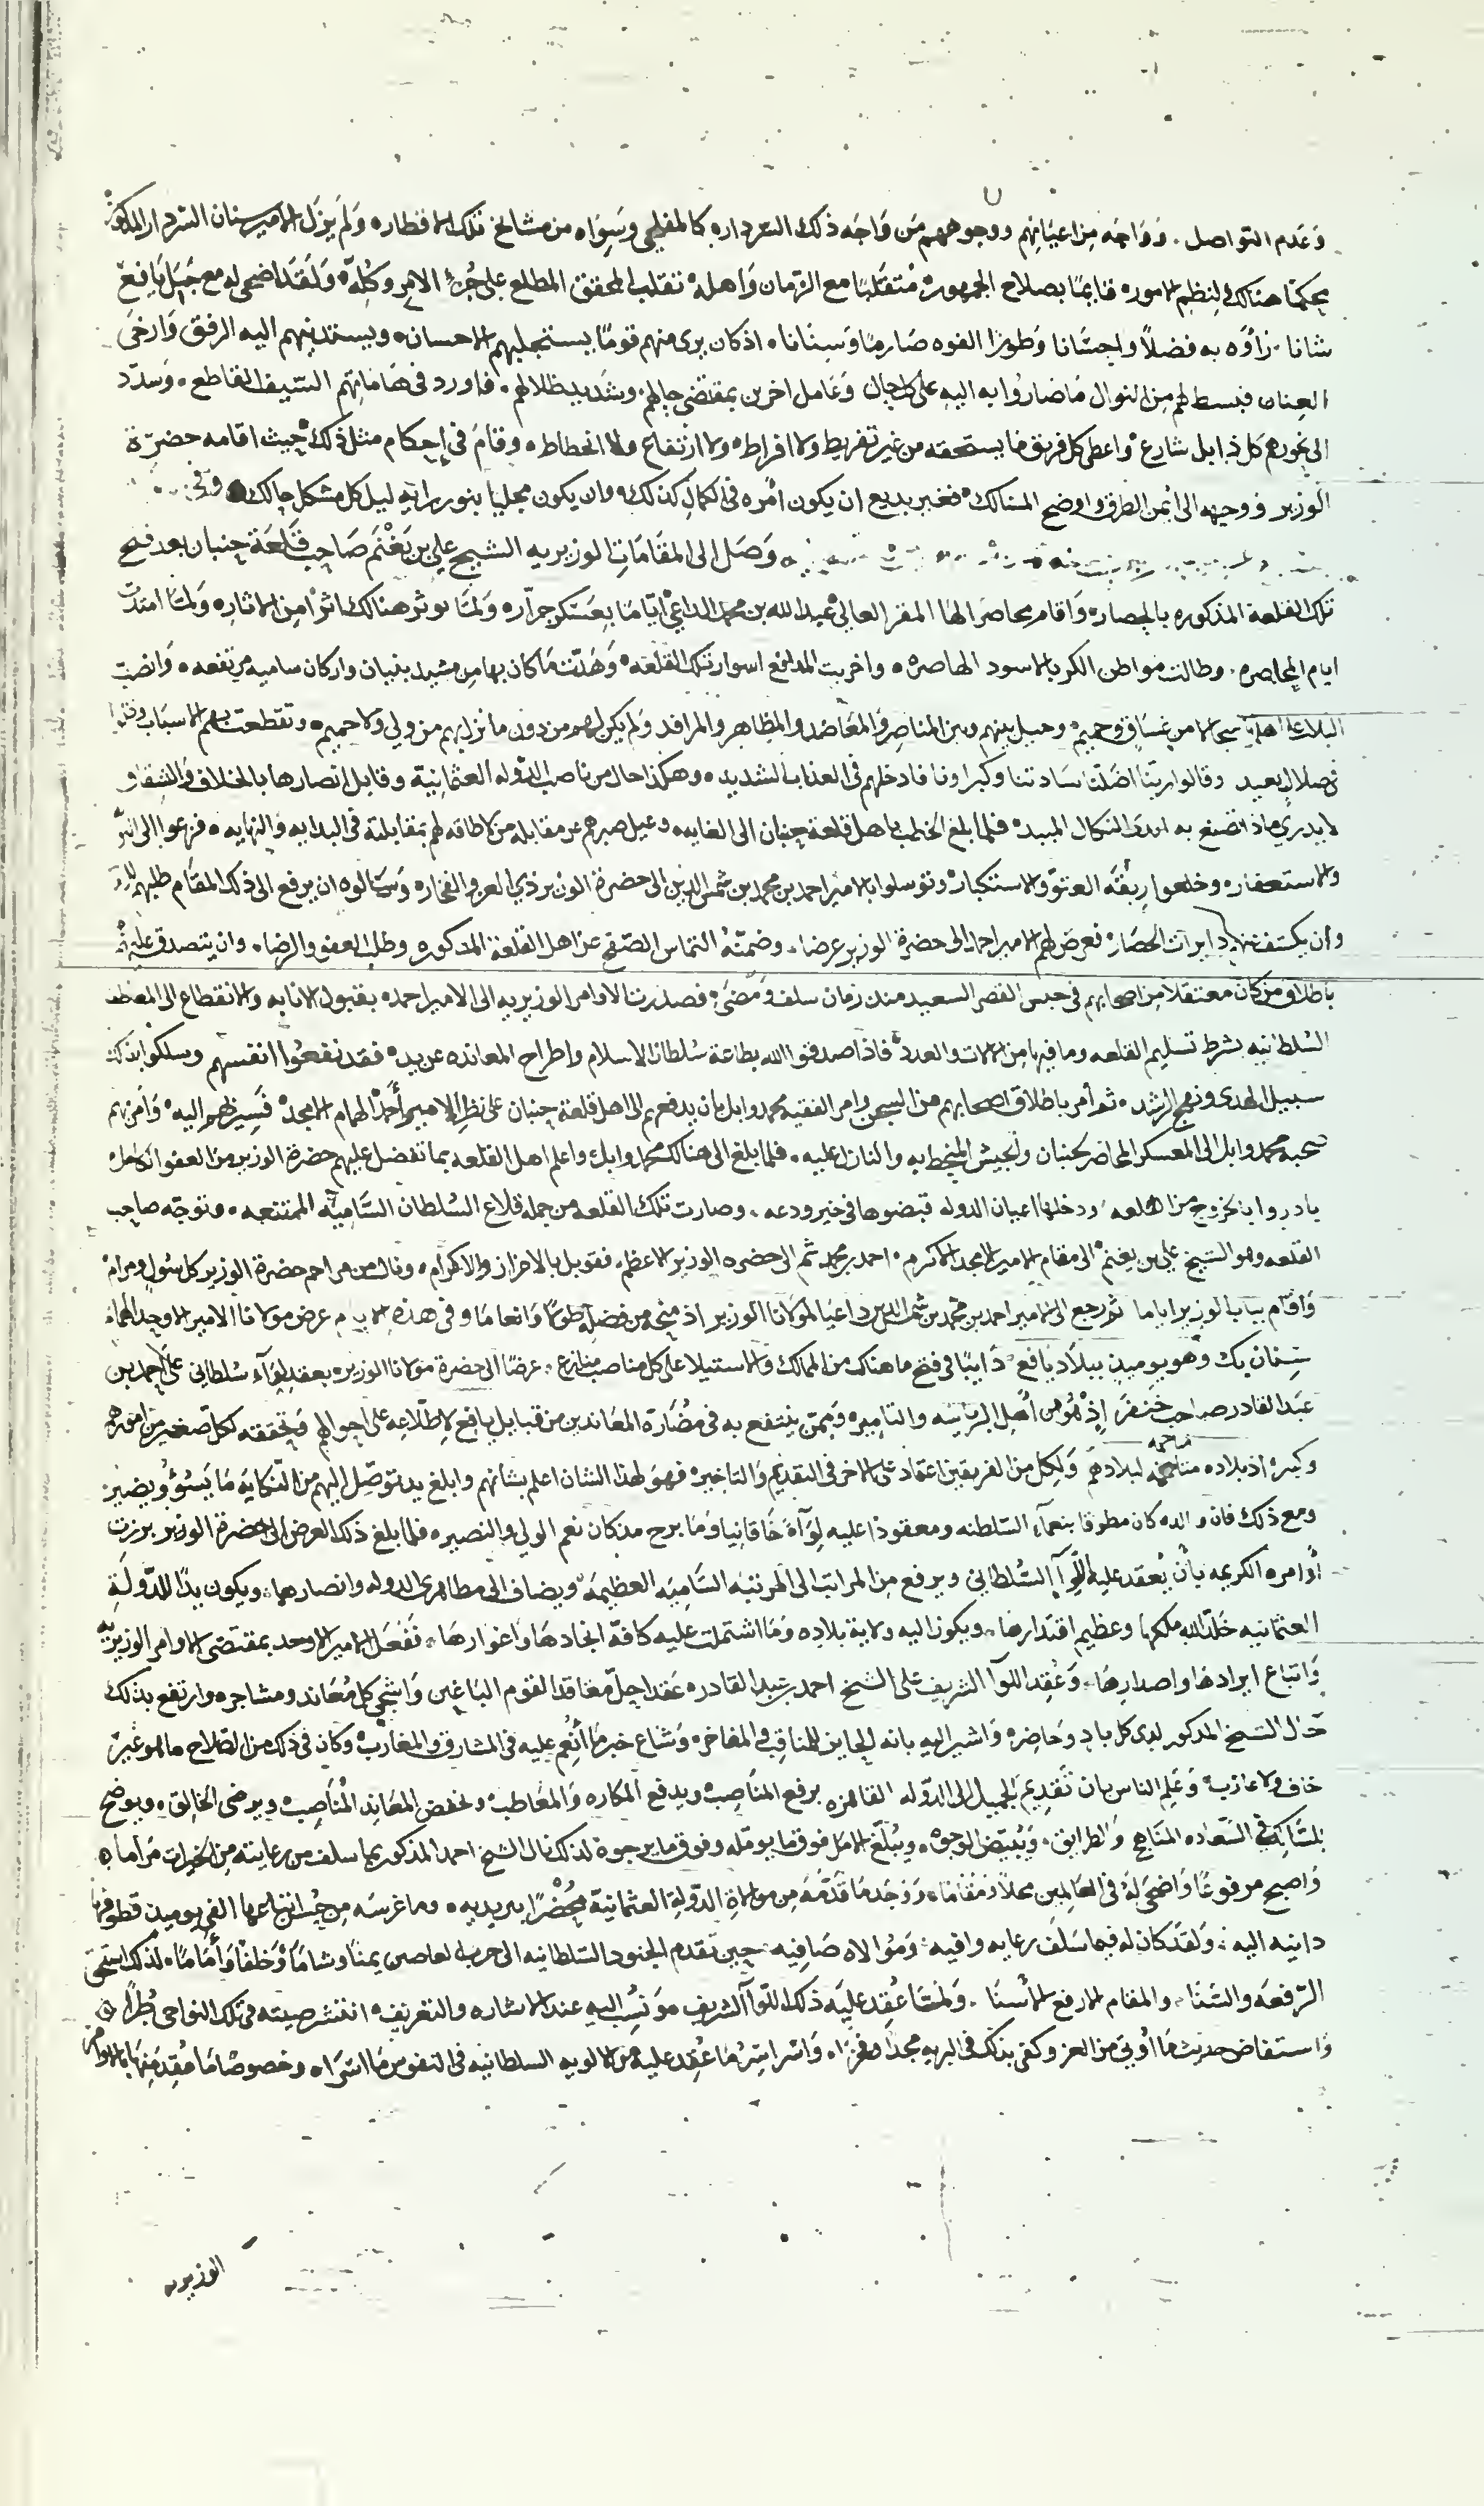 وعدم التواصل . وواجه من اعيانهم ووجوههم من واجه ذلك السردار ه كالمفلحي وسواه من مشايخ تلك الاقطار ه ولم يزل الامير سنان السردار المذكور
محكما هنالك لنظم الامور ه قايمًا بصلاح الجمهور ه متقلبا مع الزمان واهله تقلب المحقق المطلع على جزء الامر وكله ه ولقد اضحى له مع جبل يافع
شانا . زاوه به فضلاً واحسانا وطورا الفوه صارما وسنانا ه اذ كان يرى منهم قومًا يستجلبهم الاحسان ه ويستدنيهم اليه الرفق وارخى
العنان فبسط لهم من النوال ما صاروا به اليه على كل حال وعامل اخرين بمقتضى حالهم . وشديد ظلالهم . فاورد في هاماتهم السيف القاطع . وسدد
الى نحورهم كل ذابل شارع ه واعطى كل فريق ما يستحقه من غير تفريط ولا افراط ه ولا ارتفاع ولا انحطاط ه وقام في احكام مثل ذلك حيث اقامه حضرة
الوزير ووجهه الى ايمن الطرق واوضح المسالك ه فغير بديع ان يكون امره في الكمال كذلك ه وان يكون مجليا بنور رايه ليل كل مشكل حالك ه وفي
ه ووصل الى المقامات الوزيريه الشيخ علي بن يغنم صاحب قلعة جنبان بعد فتح
تلك القلعة المذكوره بالحصار ه واقام محاصرا لها المقر العالي عبد الله بن محمد الداعي اياما بعسكر جرار ه ولما يوثر هنالك اثرا من الاثار ه ولما امتدت
ايام المحاصره . وطالت مواطن الكر بالاسود الهاصره ه واخربت المدافع اسوار تلك القلعه ه وهدت ما كان بها من مشيد بنيان واركان ساميه مرتفعه ه وانصب
البلاء على اهلها سجالا من غساق وحميم ه وحيل بينهم وبين المناصر والمعاضد والمظاهر والمرافد ولم يكن لهم من دون ما نزل بهم من ولي ولا حميم ه وتقطعت بهم الاسباب
في ضلال بعيد وقالوا ربنا اضلنا سادتنا وكبراونا فادخلهم في العذاب الشديد ه وهكذا حال من ناصب الدوله العثمانية وقابل انصارها بالخلاف والشقاق
لا يدري ماذا تصنع به ايدي النكال المبيد ه فلما بلغ الخطب باهل قلعة جنبان الى الغايه ه وعيل صبرهم عن مقابلة من لا طاقه لهم بمقابلته في البدايه والنهايه ه فزعوا الى
والاستغفار ه وخلعوا ربقة العتو والاستكبار ه وتوسلوا بالامير احمد بن محمد بن شمس الدين الى حضرة الوزير ذي العز والفخار ه وسالوه ان يرفع الى ذلك المقام طلبهم
وان يكشف عنهم دايرات الحصار ه فعرض لهم الامير احمد الى حضرة الوزير عرضا . وضمنه التماس الصفح عن اهل القلعة المذكوره وطلب العفو والرضا ه وان يتصدق عليهم
باطلاق من كان معتقلا من اصحابهم في حبس القصر السعيد منذ زمان سلف ومضى ه فصدرت الاوامر الوزيريه الى الامير احمد ه بقبول الانابه والانقطاع الى
السلطانيه بشرط تسليم القلعه وما فيها من الالات والعدد ه فاذا صدقوا الله بطاعة سلطان الاسلام واطراح المعانده عن يد ه فقد نفعوا انفسهم وسلكوا بذلك
سبيل الهدى ونهج الرشد ه ثم امر باطلاق اصحابهم من السجن وامر الفقيه محمد وابل بان يدفعهم الى اهل قلعة جنبان على نظر الامير احمد الهمام الامجد ه فسيرهم اليه ه وامن بهم
صحبه محمد وابل الى المعسكر المحاصر لجنبان والجيش المحيط به والنازل عليه . فلما بلغ الى هنالك محمد وابل واعلم اهل القلعه بما تفضل عليهم حضرة الوزير من العفو الكامل
بادروا بالخروج من القلعه ودخلها اعيان الدوله قبضوها في خير ودعه ه وصارت تلك القلعه من جمله قلاع السلطان الساميه الممتنعه ه وتوجه صاحب
القلعه وهو الشيخ علي بن يغنم الى مقام الامير الامجد الاكرم ه احمد بن محمد ثم الى حضره الوزير الاعظم ه فقوبل بالاحراز والاكرام ه ونال من مراحم حضرة الوزير كل سول ومرام ه
واقام بباب الوزير اياما ثم رجع الى الامير احمد بن محمد بن شمس الدين داعيا لمولانا الوزير اذ منحه من فضله طولا وانعاما وفي هذه الايام عرض مولانا الامير الاوحد الهمام
سنان بك وهو يوميذ ببلاد يافع دايبًا في فتح ما هنالك من الممالك والاستيلا على كل مناصب منازع . عرضا الى حضرة مولانا الوزير ه بعقد لواء سلطاني على احمد بن
عبد القادر صاحب خنفر اذ هو من اهل الرياسه والتامير ه وبمن ينتفع به في مضارة المعاندين من قبايل يافع لاطلاعه على احوالهم وتحققه لكل صغير من امورهم
وكبير ه اذ بلاده متاخمه لبلادهم ولكل من الفريقين اعتماد على الاخر في التقديم والتاخير ه فهو لهذا الشان اعلم بشانهم وابلغ يد توصل اليهم من النكايه ما يسوؤ ويضير
ومع ذلك فان والده كان مطوقا بنعماء السلطنه ومعقودا عليه لواء خاقانيا وما برح مذ كان نعم الولي والنصير ه فلما بلغ ذلك العرض الى حضرة الوزير برزت
اوامره الكريمه بان يعقد عليه اللوآ السلطاني ويرفع من المراتب الى المرتبه الساميه العظيمه ه ويضاف الى مظاهري الدوله وانصارها ه ويكون يدا للدولة
العثمانيه خلد الله ملكها وعظيم اقتدارها ه ويكون اليه ولاية بلاده وما اشتملت عليه كافة انجادها واغوارها . ففعل الامير الاوحد بمقتضى الاوامر الوزيريه
واتباع ايرادها واصدارها ه وعقد اللوآ الشريف على الشيخ احمد بن عبد القادر ه عقدا حل معاقد القوم الباغين واشجى كل معاند ومشاجر ه وارتفع بذلك
حال الشيخ المذكور لدى كل باد وحاضر ه واشير اليه بانه الحايز للمناقب والمفاخر ه وشاع خبر ما انعم عليه في المشارق والمغارب ه وكان في ذلك من الصلاح ما هو غير
خاف ولا عازب ه وعلم الناس بان تقديم الجميل الى الدوله القاهره يرفع المناصب ه ويدفع المكاره والمعاطب ه ويخفض المعاند المناصب ه ويرضى الخالق ه ويوضح
لسالكه في السعاده المناهج والطرايق . ويبيض الوجوه ه ويبلغ الامل فوق ما يومله وفوق ما يرجوه لذلك نال الشيخ احمد المذكور بما سلف من رعايته من الخيرات مراما ه
واصبح مرفوعا واضحى له في العالمين محلا ومقاما ه ووجد ما قدمه من موالاة الدولة العثمانية محضرا بين يديه ه وما غرسه من
دانيه اليه . ولقد كان له فيما سلف رعايه وافيه ه وموالاه صافيه حين تقدم الجنود السلطانيه الى حرب العاصين يمنا وشاما وخلفا واماما ه لذلك استحق
الرفعه والسنا ه والمقام الارفع الاسنا . ولما عقد عليه ذلك اللوآ الشريف ه ونسب اليه عند الاشاره والتعريف ه انتشر صيته في تلك النواحي طرا ه
واستفاض حديث ما اوتي من العز وكفى بذلك في البريه مجدا وفخرا ه واسر سر ما عقد عليه من الالويه السلطانيه في النفوس ما اسرا ه وخصوصا ما عقد منها بالاوامر
الوزيريه